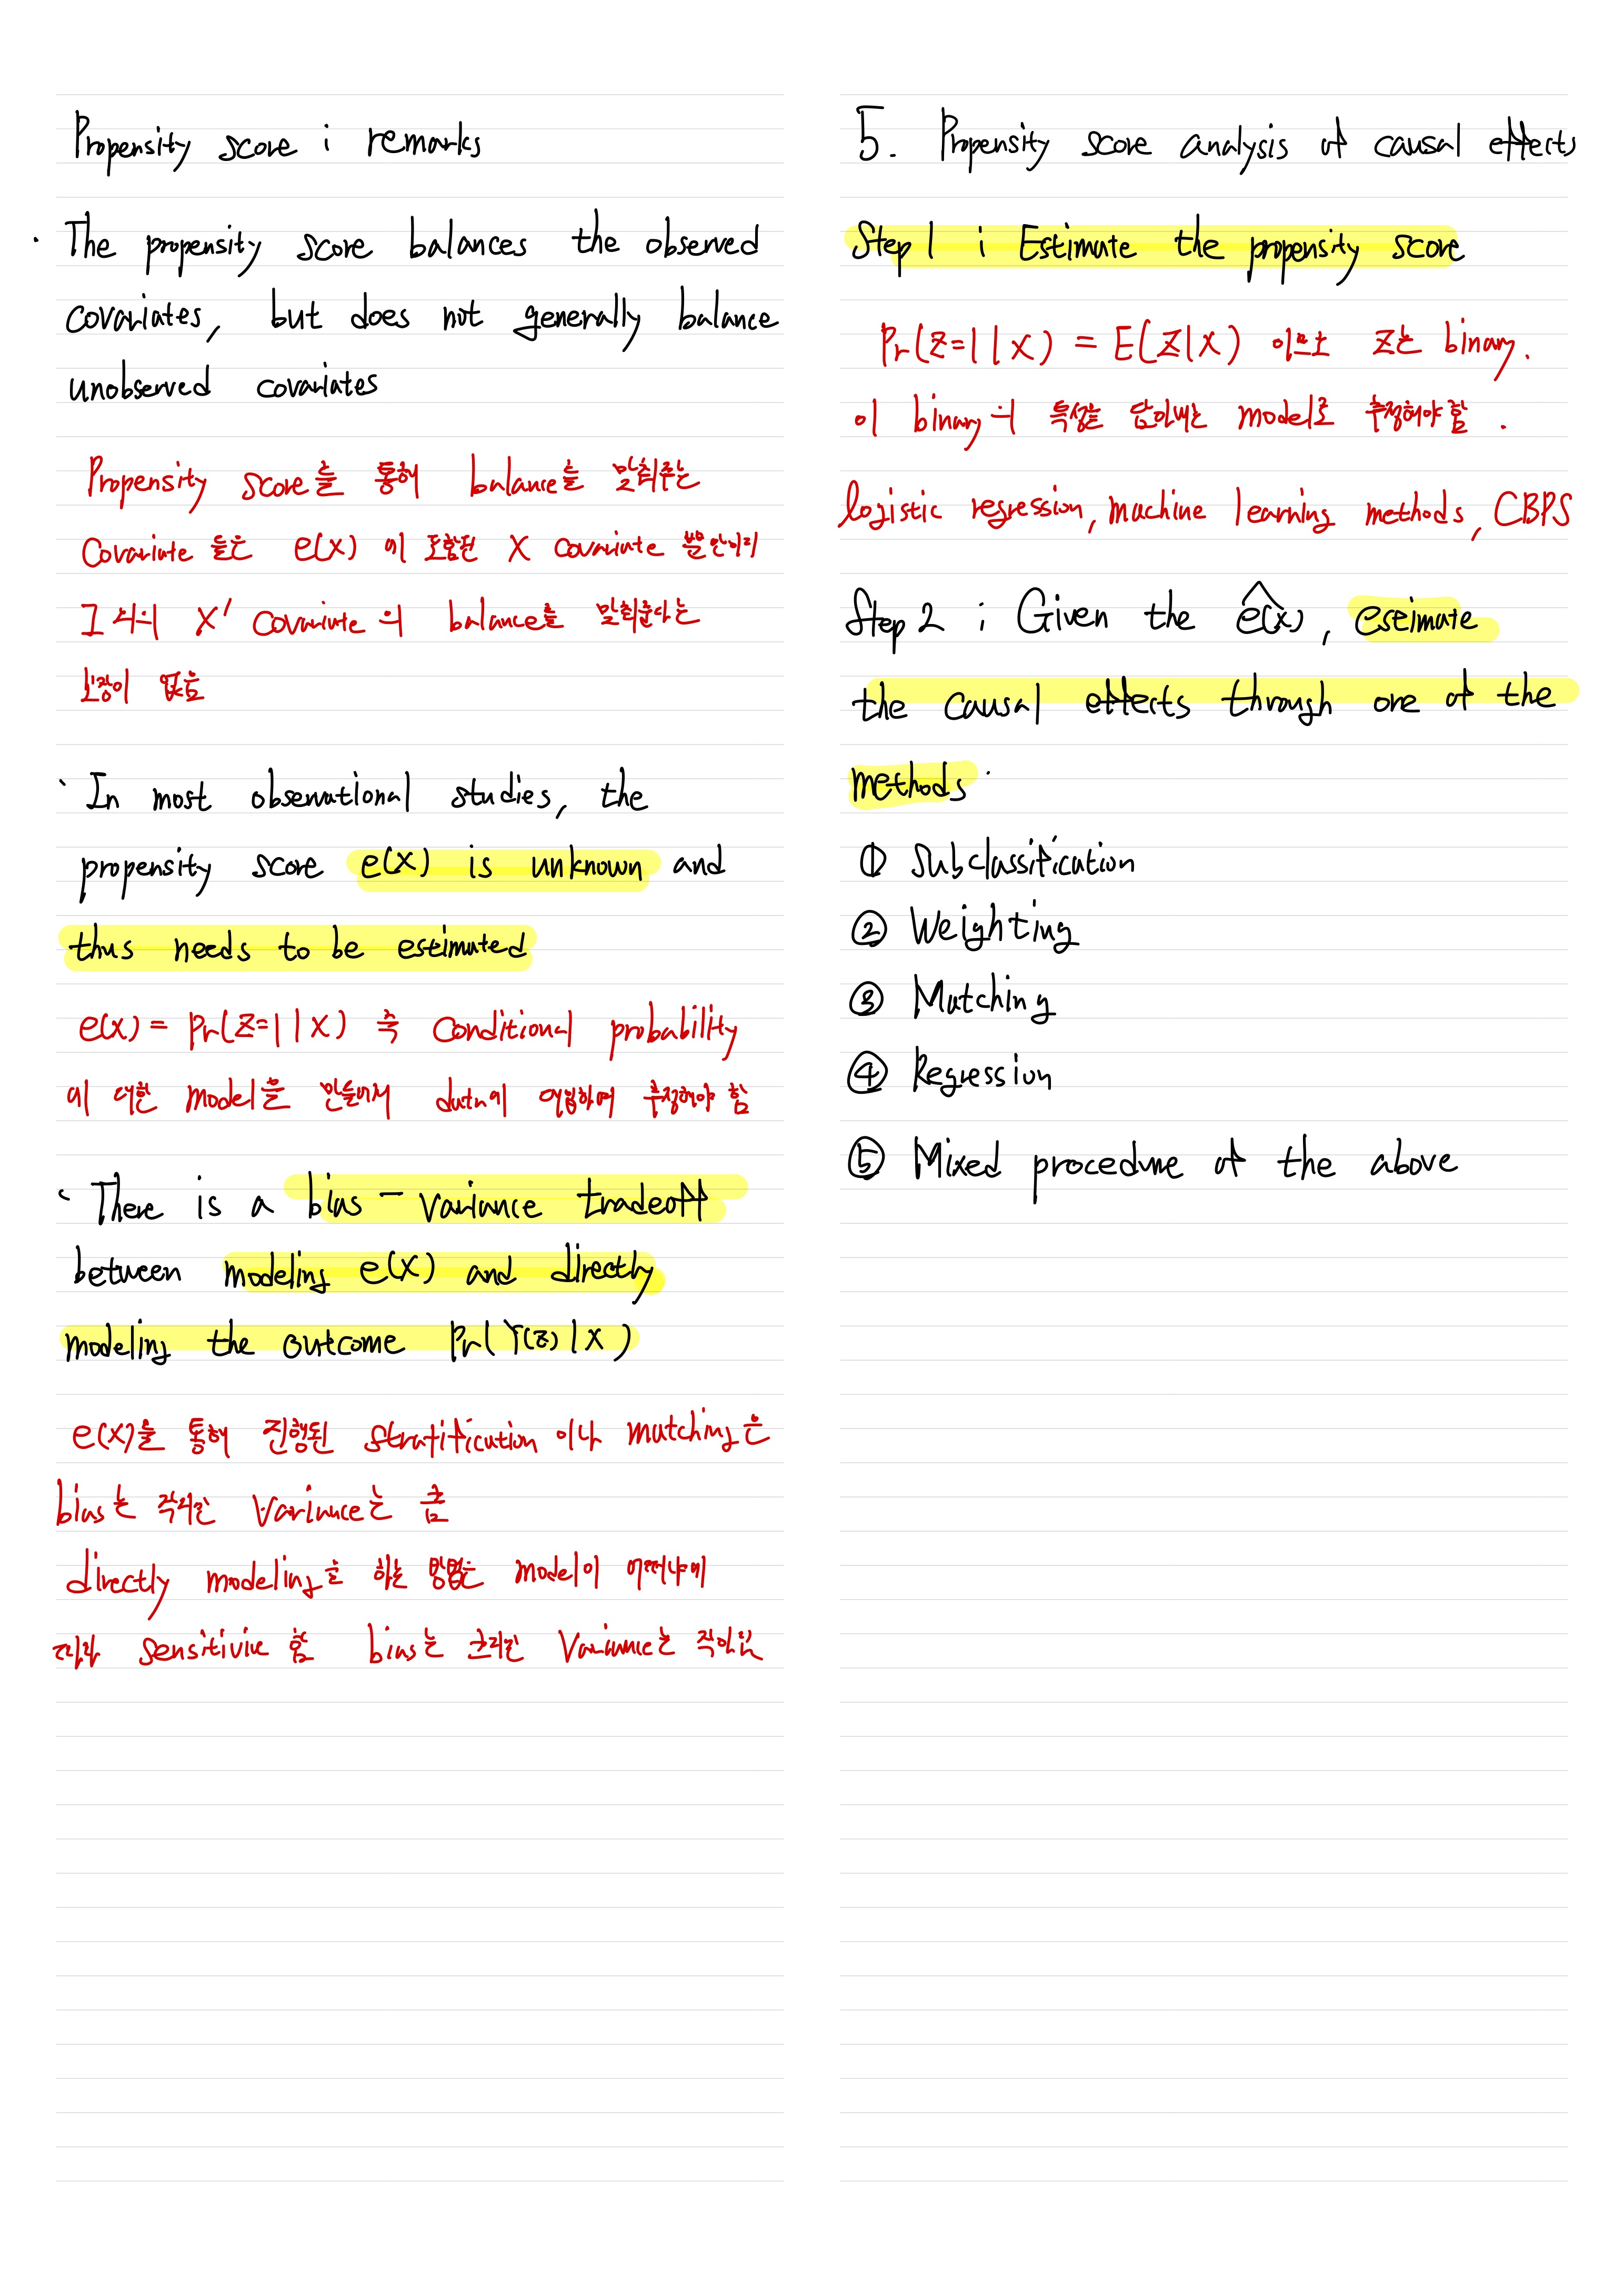 Propensity score ; remarks
· The propensity score balances the observed
covariates, but does not generally balance
unobserved covariates
Propensity score를 통해 balance를 맞춰주는
Covariate 들은 e(x) 에 포함된 X covariate 뿐 아니라
그 외의 X' covariate 의 balance를 맞춰준다는
보장이 없음
· In most observational studies, the
propensity score e(x) is unknown and
thus needs to be estimated
e(x) = Pr(Z=1|X) 즉 conditional probability
에 대한 model을 만들어서 data에 적합하여 추정해야 함
· There is a bias - variance tradeoff
between modeling e(x) and directly
modeling the outcome Pr(Y(z)|X)
e(x)를 통해 진행된 stratification 이나 matching은
bias는 작지만 variance는 큼
directly modeling을 하는 방법은 model이 어떠냐에
따라 sensitivie 함 bias는 크지만 variance는 작아짐
5. Propensity score analysis of causal effects
Step 1 ; Estimate the propensity score
Pr(Z=1|X) = E(Z|X) 이므로 Z는 binary.
이 binary의 특성을 담아내는 model로 추정해야 함.
logistic regression, machine learning methods, CBPS
Step 2 ; Given the ê(x), estimate
the causal effects through one of the
methods.
① Subclassification
② Weighting
③ Matching
④ Regression
⑤ Mixed procedure of the above